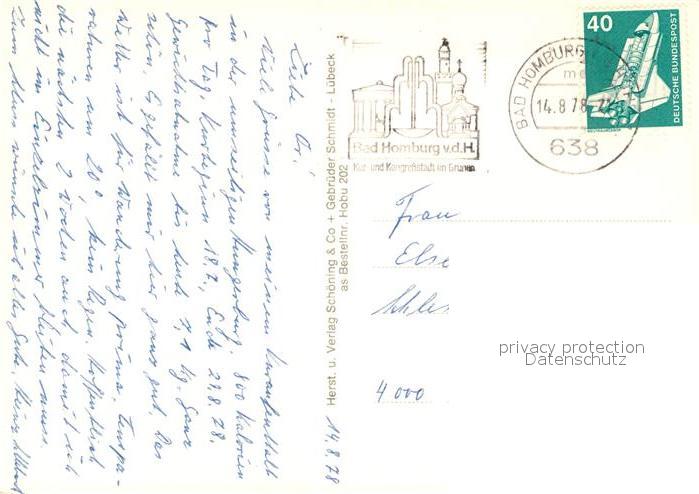 14.8.78
Liebe
Viele Grüsse von meinem Kuraufenthalt
in der einmaligen Hungerburg. 800 Kalorien
pro Tag, Kurbeginn 18.7., Ende 29.8.78.
Gewichtsabnahme bis heute 7,1 kg. Ganz
schön. Es gefällt mir hier ganz gut. Das
Wetter ist für Wanderung prima, Tempe-
raturen um 20° kein Regen. Hoffentlich
die nächsten 2 Wochen auch damit ich
nicht im Einzelzimmer bleiben muss.
Zum wünsche alles Gute,
Herst. u. Verlag Schöning & Co + Gebrüder Schmidt - Lübeck
as Bestellnr. Hobu 202
Bad Homburg v.d.H.
Kur- und Kongreßstadt im Grünen
BAD HOMBURG
14.8.78
638
40
DEUTSCHE BUNDESPOST
Frau
Else
4000
privacy protection
Datenschutz